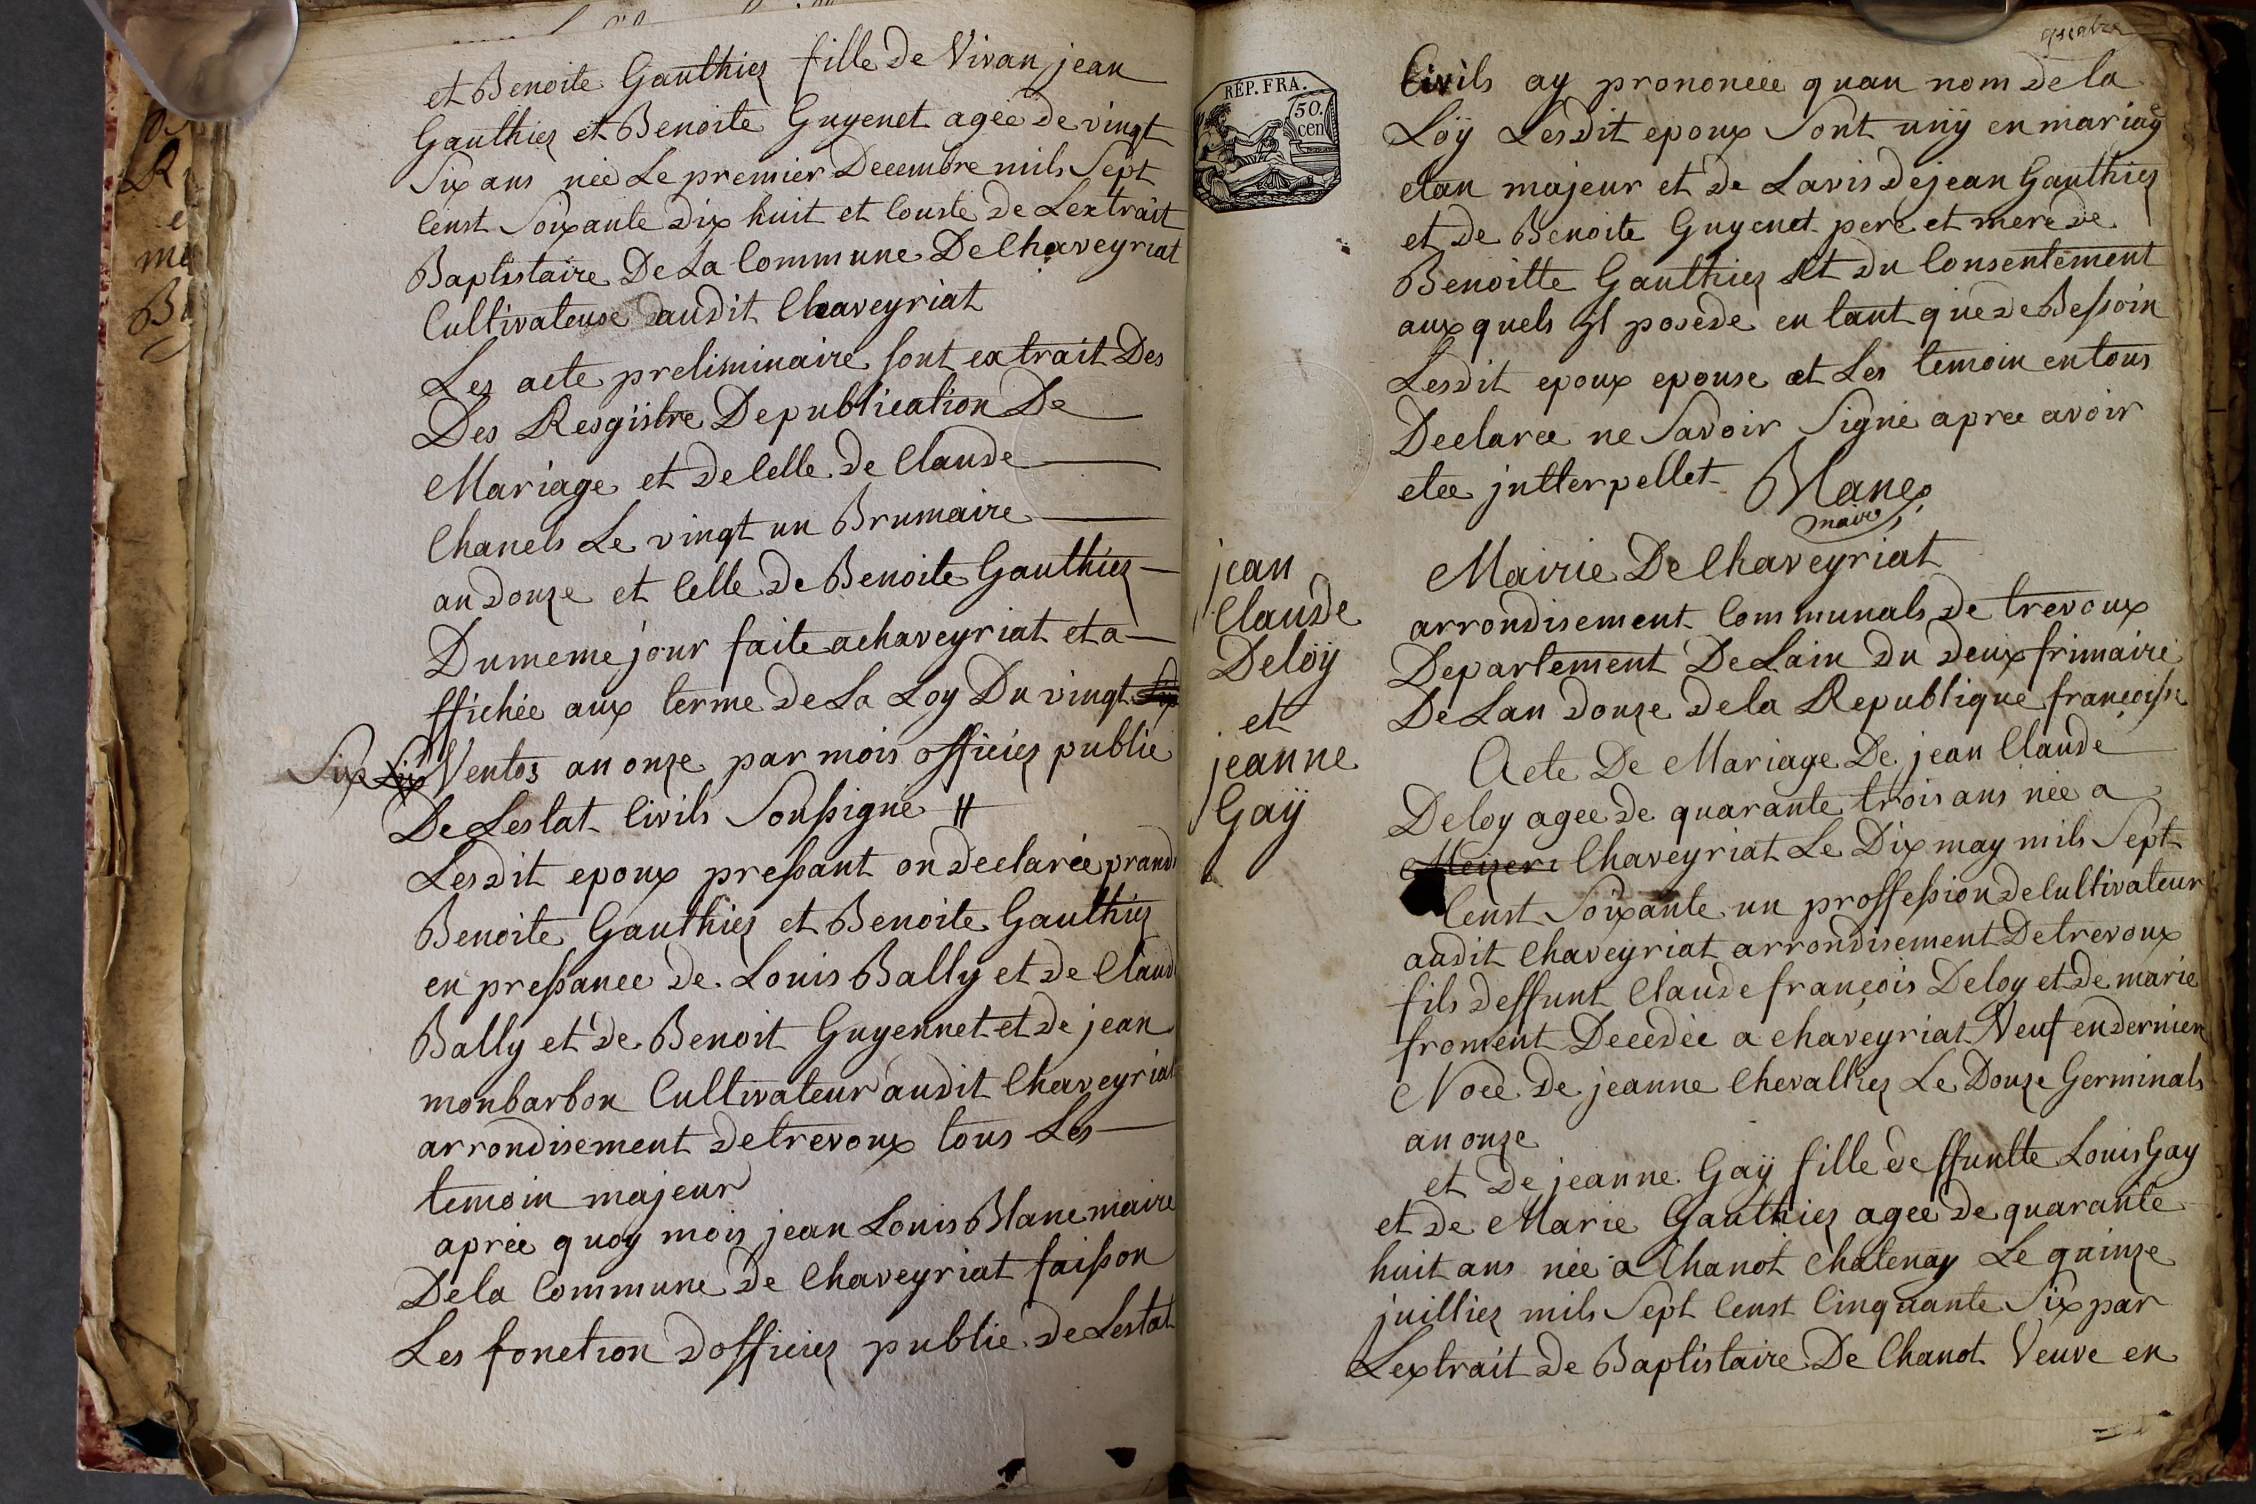 et Benoite Gauthier fille de Vivan jean
Gauthier et Benoite Guyenet agée de vingt
Six ans née Le premier Decembre mils Sept
Censt Soixante dix huit et Couste de Lextrait
Baptistaire De La Commune De Chaveyriat
Cultivateuse audit Chaveyriat
Les acte preliminaire sont extrait Des
Des Resgistre De publication De
Mariage et de Celle de Claude
Chanels Le vingt un Brumaire
an douze et Celle de Benoite Gauthier
Du meme jour faite a chaveyriat et a
ffichée aux terme de La Loy Du vingt
Six Ventos an onze par mois officier public
De Lestat Civils Soussigne
Lesdit epoux pressant on declarée prand
Benoite Gauthier et Benoite Gauthier
en pressance de Louis Bally et de Claud
Bally et de Benoit Guyennet et de jean
monbarbon Cultivateur audit Chaveyriat
arrondisement de trevoux tous Les
temoin majeur
aprée quoy mois jean Louis Blanc maire
De la Commune de Chaveyriat faisson
Les fonction dofficier public de Lestat
quatre
REP. FRA.
50.
cen
Civils ay prononcée quau nom de la
Loÿ Lesdit epoux Sont unÿ en mariage
etan majeur et de Lavis de jean Gauthier
et de Benoite Guyenet pere et mere de
Benoitte Gauthier et du Consentement
aux quels yl posede en tant que de Bessoin
Lesdit epoux epouse et Les temoin en tous
Declaree ne Savoir Signé apree avoir
etee jntterpellet Blanc
maire
jean
Claude
Deloÿ
et
jeanne
Gaÿ
Mairie De Chaveyriat
arrondisement Communals de trevoux
Departement De Lain du deux frimaire
De Lan douze de la Republique françoisse
Acte De Mariage De jean Claude
Deloy agee de quarante trois ans née a
Mezeri Chaveyriat Le Dix may mils Sept
Censt Soixante un proffession de Cultivateur
audit Chaveyriat arrondisement De trevoux
fils deffunt Claude françois Deloy et de marie
froment Decedée a chaveyriat Veuf en dernier
Noce de jeanne Chevallier Le Douze Germinals
an onze
et De jeanne Gaÿ fille deffuntte Louis Gay
et de Marie Gauthier agee de quarante
huit ans née a Chanot Chatenay Le quinze
juillier mils Sept Censt Cinquante Six par
Lextrait de Baptistaire De Chanot Veuve en